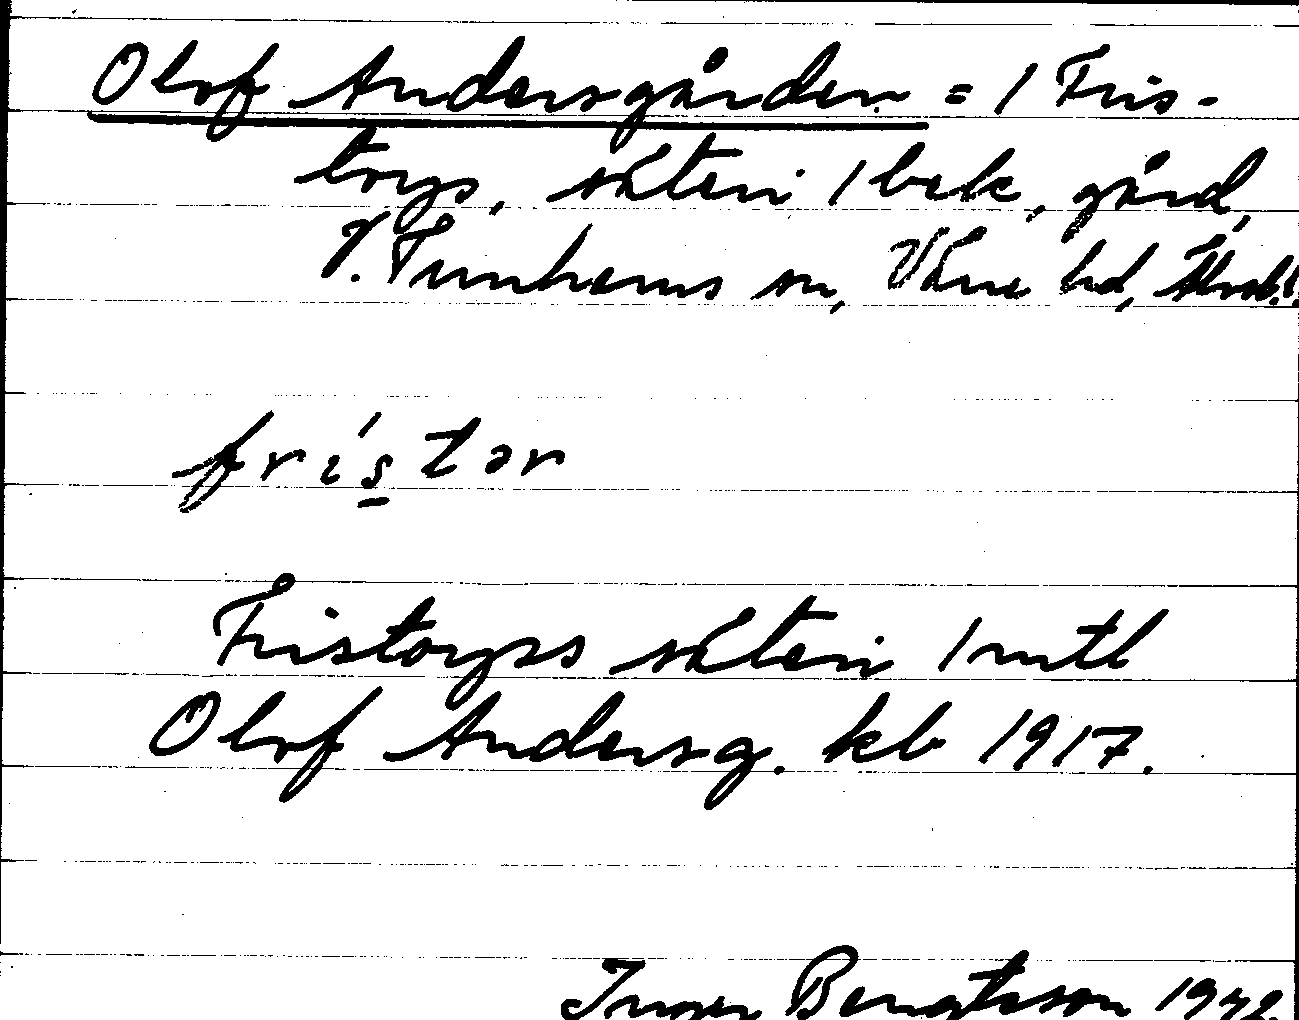 Olof Andersgården = 1 Fris-
torps, säteri 1 bek, gård,
V. Tunhems sn, Väne hd, Älvsb. l.
fristər
Fristorps säteri 1 mtl
Olof Andersg. kb 1917.
Inger Bengtsson 1942